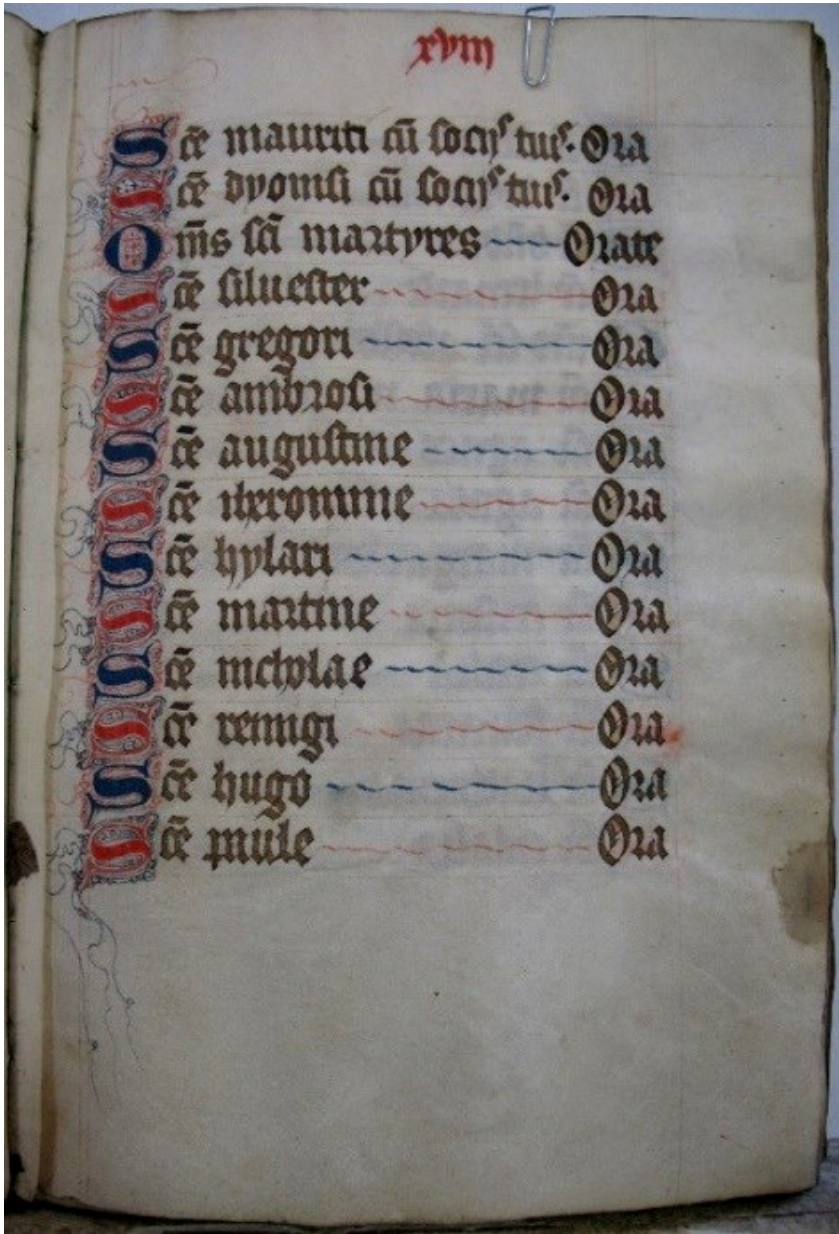 xviii
Sce mauriti cu socijs tuis. Ora
Sce dyonisi cu socijs tuis. Ora
Oms sci martyres Orate
Sce siluester Ora
Sce gregori Ora
Sce ambrosi Ora
Sce augustine Ora
Sce iheronime Ora
Sce hylari Ora
Sce martine Ora
Sce nicholae Ora
Sce remigi Ora
Sce hugo Ora
Sce paule Ora